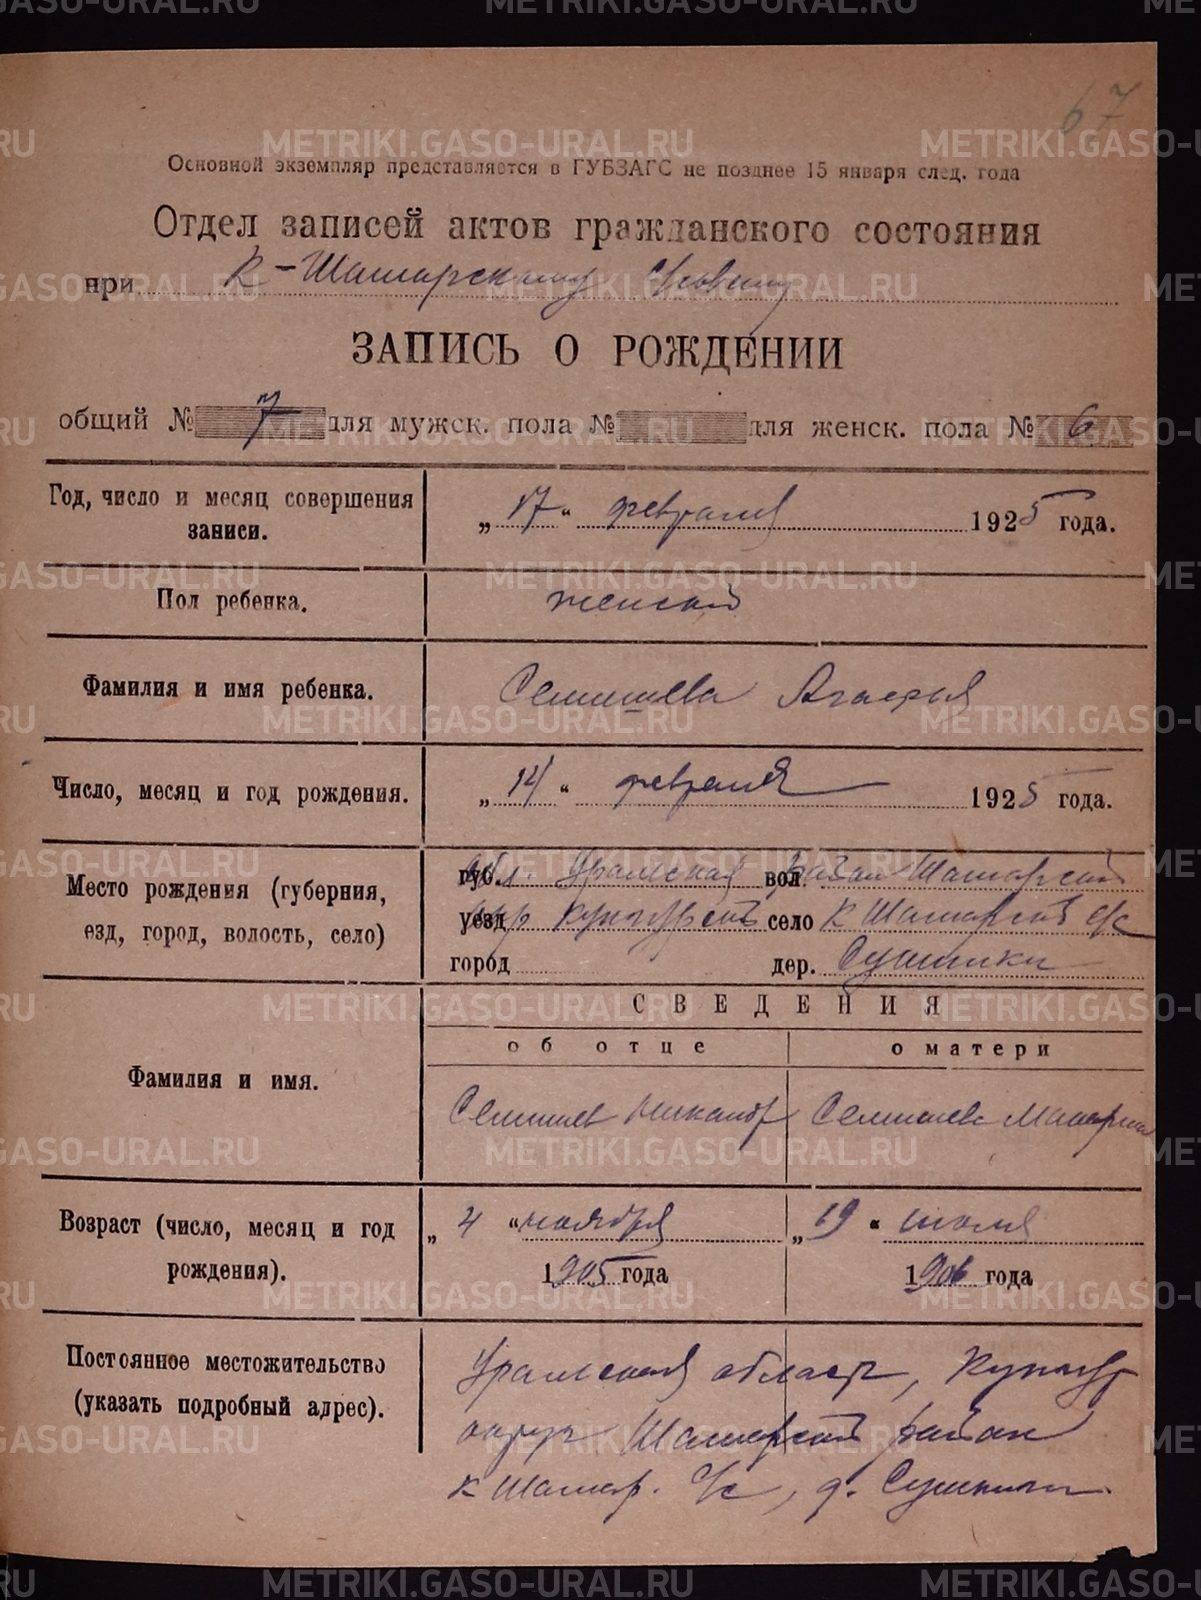 67
Основной экземпляр представляется в ГУБЗАГС не позднее 15 января след. года
Отдел записей актов гражданского состояния
при К-Шамарскому
ЗАПИСЬ О РОЖДЕНИИ
общий № 7 для мужск. пола № для женск. пола № 6
Год, число и месяц совершения записи.
„17“ февраля 1925 года.
Пол ребенка.
женский
Фамилия и имя ребенка.
Семишева Агафья
Число, месяц и год рождения.
„14“ февраля 1925 года.
Место рождения (губерния,
езд, город, волость, село)
губ. обл. Уральская вол. район Шамарский
уезд окр Кунгурский село К Шамарский с/с
город дер.
СВЕДЕНИЯ
об отце
о матери
Фамилия и имя.
Семишев Никандр
Семишева
Возраст (число, месяц и год
рождения).
„4“ ноября
1905 года
„19“ июля
1906 года
Постоянное местожительство
(указать подробный адрес).
Уральская область, Кунгур
округ Шамарский район
К Шамар. с/с, д.
METRIKI.GASO-URAL.RU